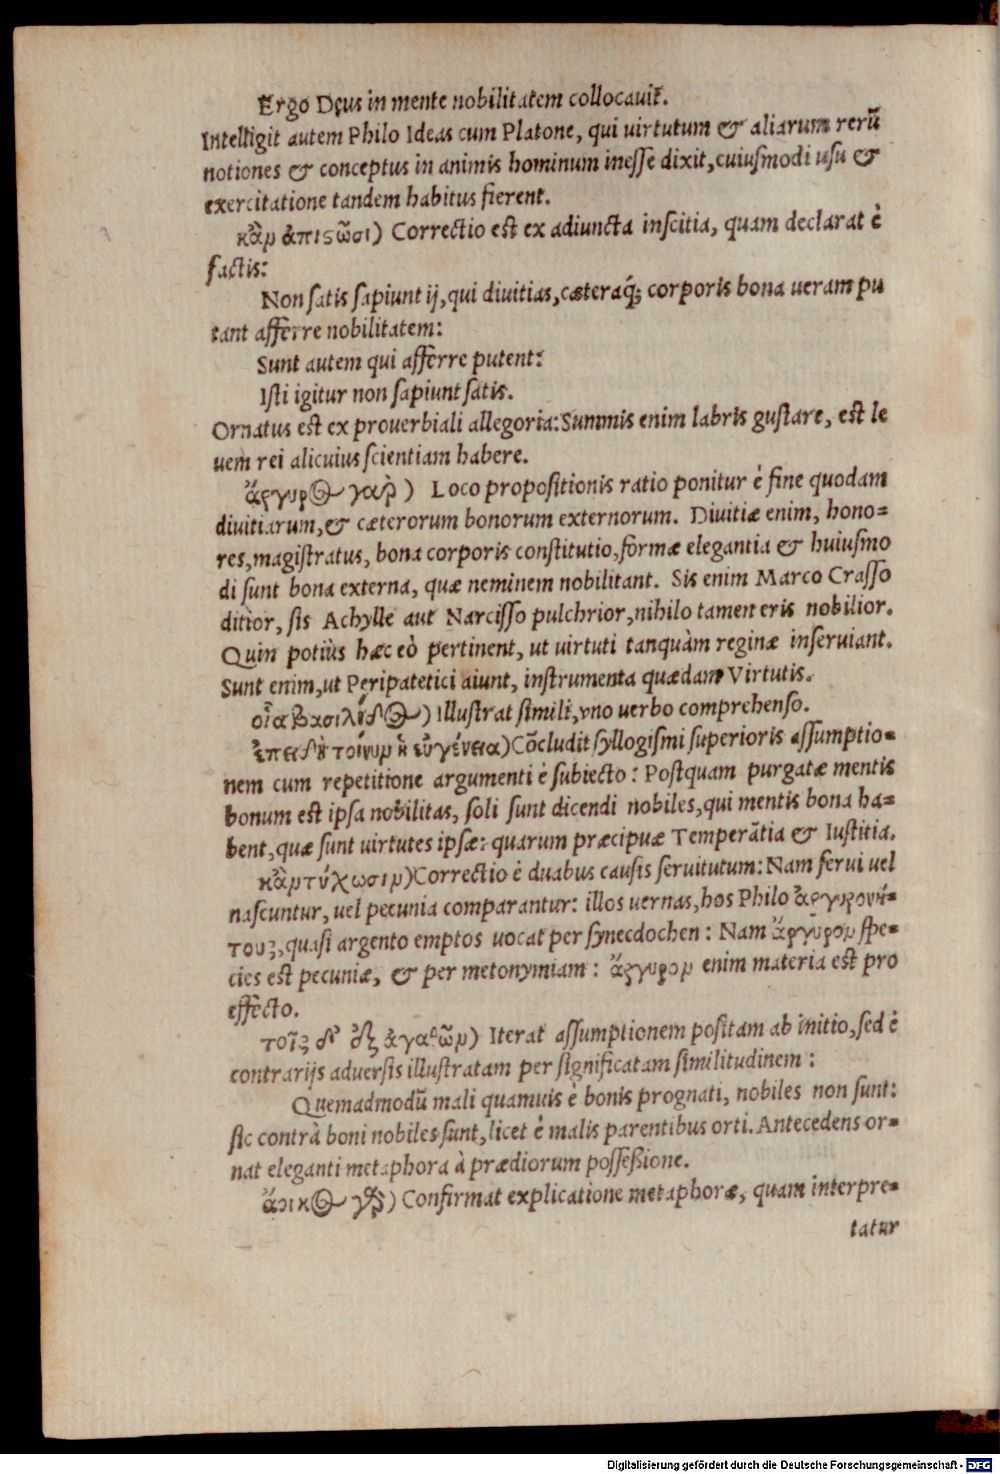 Ergo Deus in mente nobilitatem collocavit.
Intelligit autem Philo Ideas cum Platone, qui uirtutum & aliarum rerũ
notiones & conceptus in animis hominum inesse dixit, cuiusmodi usu &
exercitatione tandem habitus fierent.
κἂν ἀπιϛῶσι) Correctio est ex adiuncta inscitia, quam declarat è
factis:
Non satis sapiunt ij, qui diuitias, cæteraq́; corporis bona ueram pu
tant afferre nobilitatem:
Sunt autem qui afferre putent:
Isti igitur non sapiunt satis.
Ornatus est ex prouerbiali allegoria: Summis enim labris gustare, est le
uem rei alicuius scientiam habere.
ἄργυρος γαρ̀) Loco propositionis ratio ponitur è fine quodam
diuitiarum, & cæterorum bonorum externorum. Diuitiæ enim, hono=
res, magistratus, bona corporis constitutio, formæ elegantia & huiusmo
di sunt bona externa, quæ neminem nobilitant. Sis enim Marco Crasso
ditior, sis Achylle aut Narcisso pulchrior, nihilo tamen eris nobilior.
Quin potiùs hæc eò pertinent, ut uirtuti tanquàm reginæ inseruiant.
Sunt enim, ut Peripatetici aiunt, instrumenta quædam Virtutis.
οἷα βασιλίδος) Illustrat simili, vno uerbo comprehenso.
ἐπειδὴ τοίνυν ἡ εὐγένεια) Cõcludit syllogismi superioris assumptio=
nem cum repetitione argumenti è subiecto: Postquam purgatæ mentis
bonum est ipsa nobilitas, soli sunt dicendi nobiles, qui mentis bona ha=
bent, quæ sunt uirtutes ipsæ: quarum præcipuæ Temperãtia & Iustitia.
κἂν τύχωσιν) Correctio è duabus causis seruitutum: Nam serui uel
nascuntur, uel pecunia comparantur: illos uernas, hos Philo ἀργυρονή=
τους, quasi argento emptos uocat per synecdochen: Nam ἄργυρον spe=
cies est pecuniæ, & per metonymiam: ἄργυρον enim materia est pro
effecto.
τοῖς δ' ἐξ ἀγαθῶν) Iterat assumptionem positam ab initio, sed è
contrarijs aduersis illustratam per significatam similitudinem:
Quemadmodũ mali quamuis è bonis prognati, nobiles non sunt:
sic contrà boni nobiles sunt, licet è malis parentibus orti. Antecedens or=
nat eleganti metaphora à prædiorum possessione.
ἄοικος γὰρ) Confirmat explicatione metaphoræ, quam interpre=
tatur
Digitalisierung gefördert durch die Deutsche Forschungsgemeinschaft - DFG